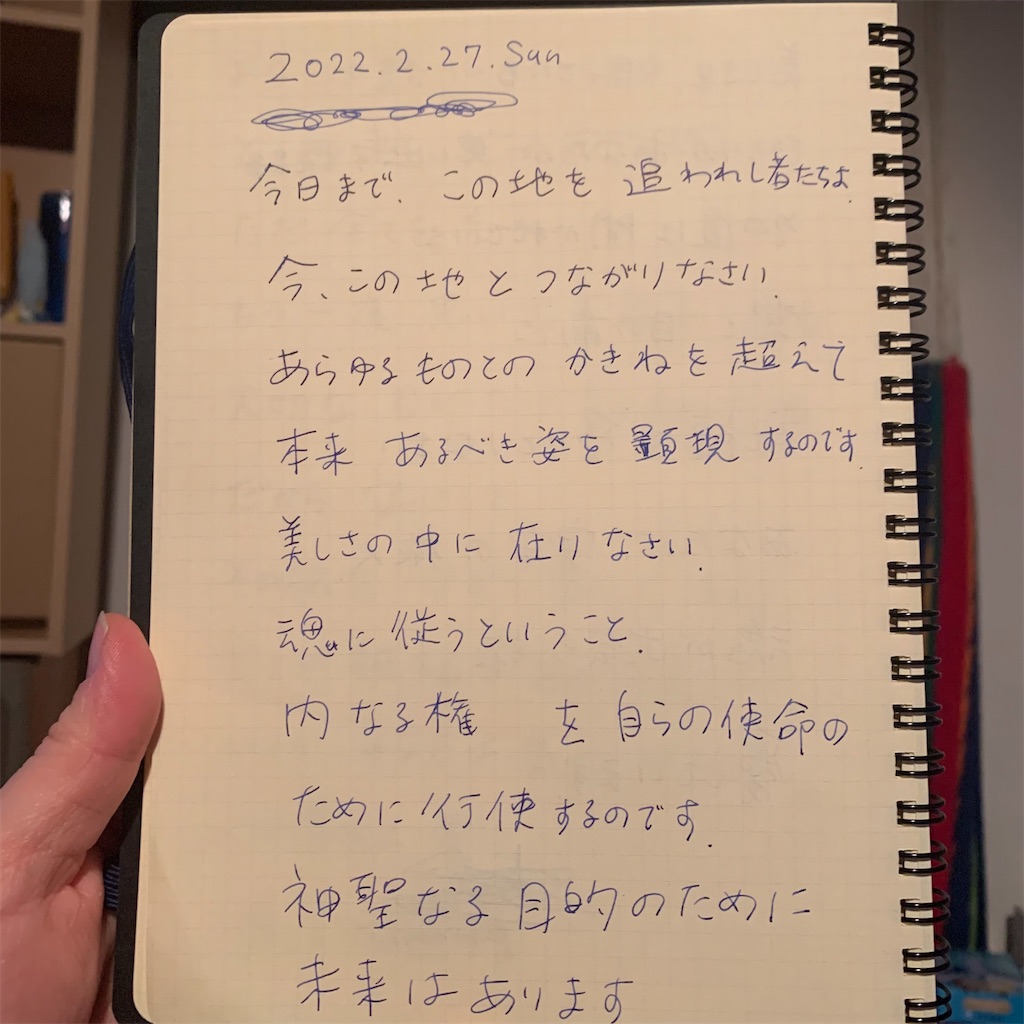 2022.2.27.Sun
今日まで、この地を追われし者たちよ
今、この地とつながりなさい.
あらゆるものとのかきねを超えて
本来あるべき姿を顕現するのです.
美しさの中に在りなさい.
魂に従うということ.
内なる権　を自らの使命の
ために行使するのです.
神聖なる目的のために
未来はあります